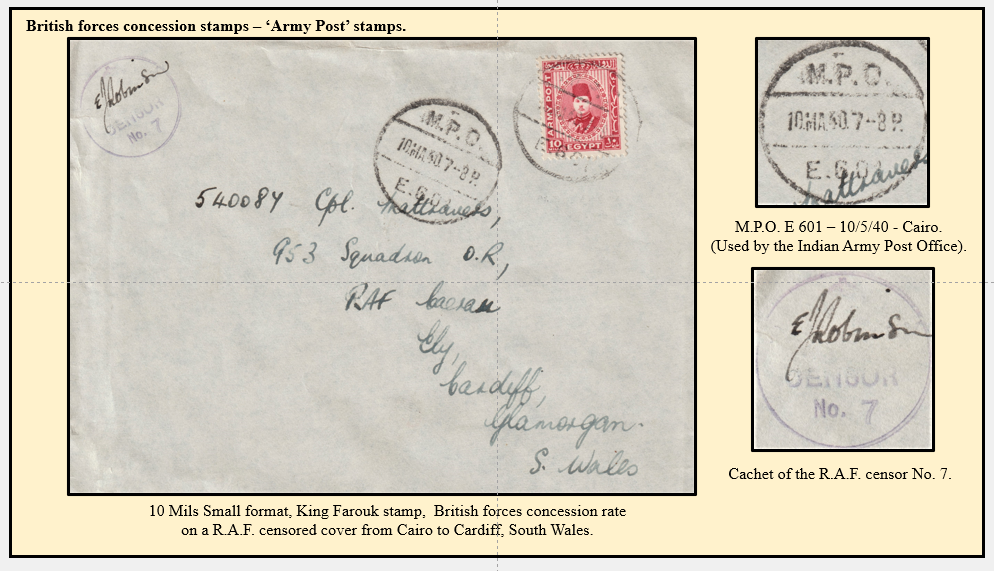 British forces concession stamps – ‘Army Post’ stamps.
E J Robinson
CENSOR
No. 7
M.P.O.
10.MA.40.7-8P.
E.601
ARMY POST
10 EGYPT
540084 Cpl. Mattravers,
953 Squadron O.R,
RAF Caerau
Ely,
Cardiff,
Glamorgan.
S. Wales
10 Mils Small format, King Farouk stamp, British forces concession rate
on a R.A.F. censored cover from Cairo to Cardiff, South Wales.
M.P.O.
10.MA.40.7-8P.
E.601
Mattravers
M.P.O. E 601 – 10/5/40 - Cairo.
(Used by the Indian Army Post Office).
E J Robinson
CENSOR
No. 7
Cachet of the R.A.F. censor No. 7.